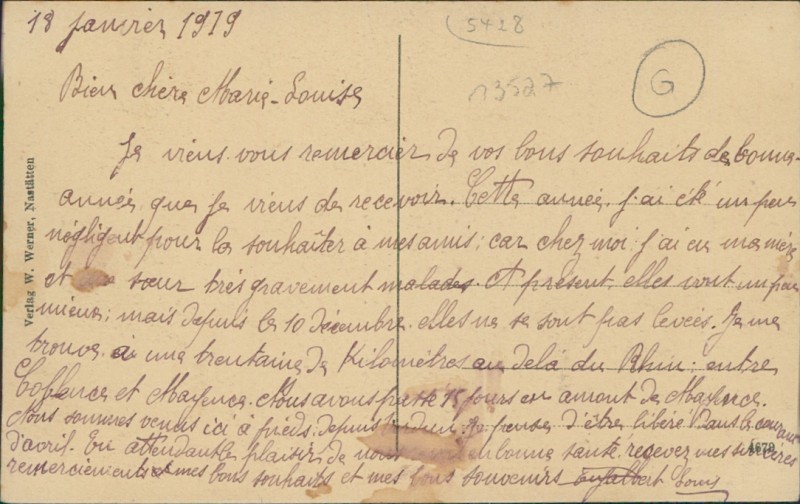 18 Janvier 1919
5428
13527
G
Bien chère Marie-Louise
Je viens vous remercier de vos bons souhaits de bonne
année que je viens de recevoir. Cette année j'ai été un peu
négligent pour la souhaiter à mes amis; car chez moi j'ai eu ma mère
et sœur très gravement malades. A présent elles vont un peu
mieux; mais depuis le 10 décembre elles ne se sont pas levées. Je me
trouve à une trentaine de Kilomètres au delà du Rhin: entre
Coblence et Mayence. Nous avons passé 15 jours en amont de Mayence.
Nous sommes venus ici à pieds depuis Je pense d'être libéré dans le courant
d'avril. En attendant le plaisir de nous en bonne santé recevez mes sincères
remerciements et mes bons souhaits et mes bons souvenirs Louis
Verlag W. Werner, Nastätten